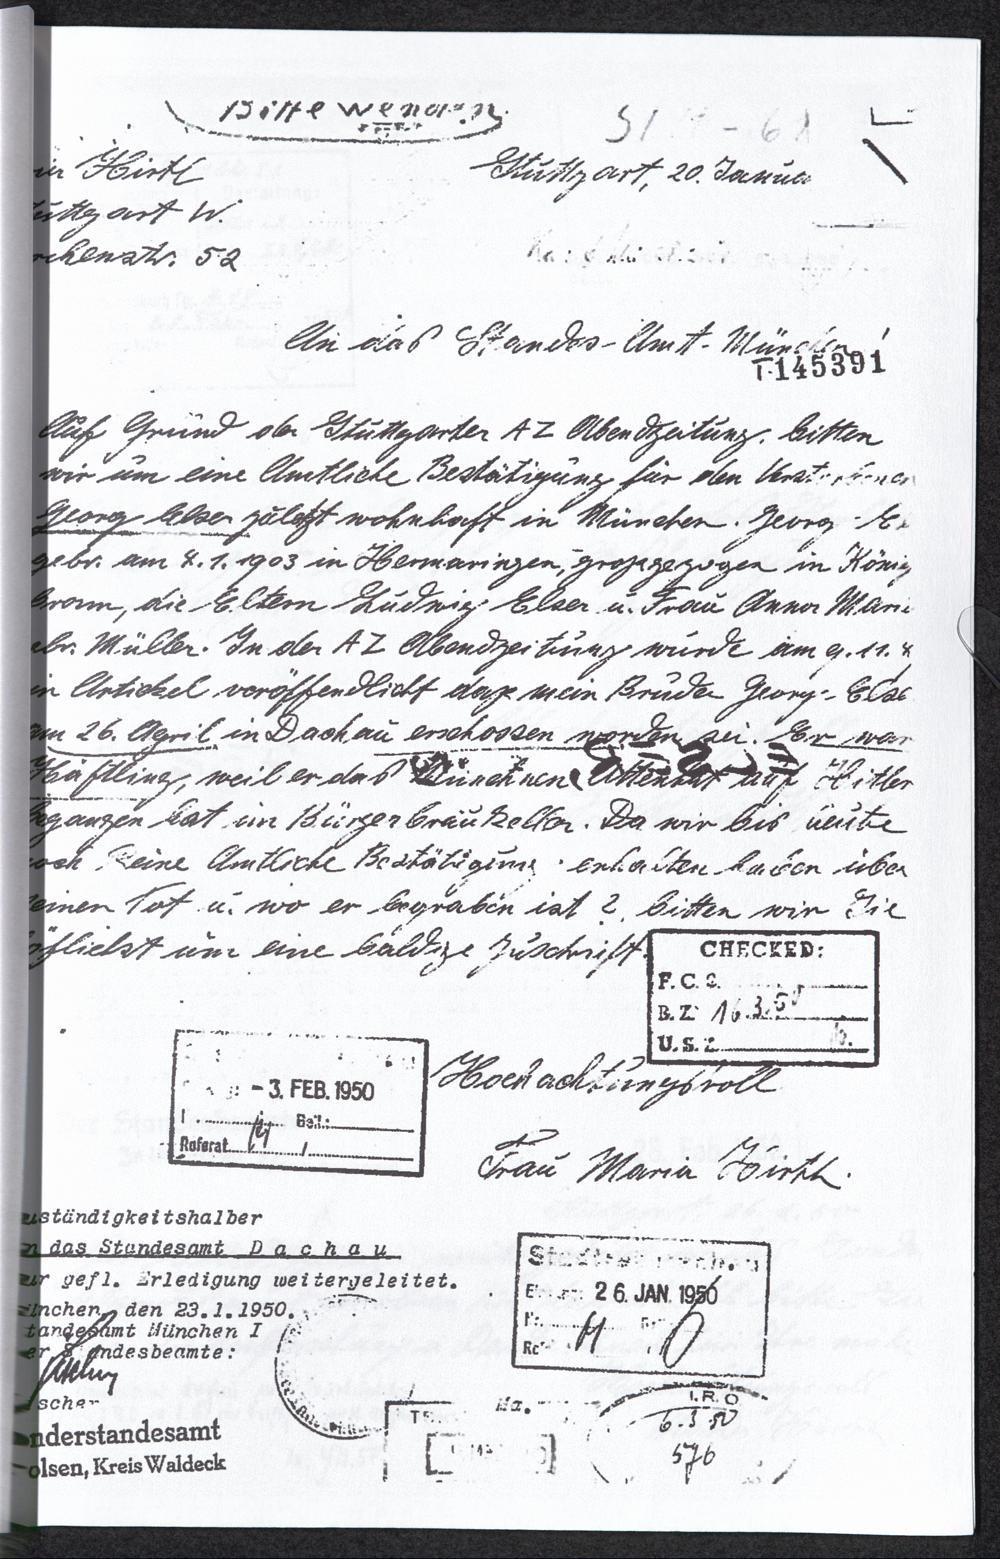 Bitte wenden
Hirth
Stuttgart, 20. Janua
uttgart W.
chenstr. 52
An das Standes-Amt-München!
T-145391
Auf Grund der Stuttgarter AZ Abendzeitung, bitten
wir um eine Amtliche Bestätigung für den Verstorbenen
Georg Elser zuletzt wohnhaft in München. Georg El
gebr. am 4.1.1903 in Hermaringen, großgezogen in König
bronn, die Eltern Ludwig Elser u. Frau Anna Mari
ebr. Müller. In der AZ Abendzeitung wurde am 9.11.4
in Artickel veröffendlicht daß mein Bruder Georg-Else
am 26. April in Dachau erschossen worden sei. Er war
Häftling, weil er das Münchnen Attentat auf Hitler
egangen hat im Bürgerbräukeller. Da wir bis heute
och keine Amtliche Bestätigung erhalten haben über
einen Tot u. wo er begraben ist?, bitten wir Sie
öflichst um eine baldige Zuschrift.
CHECKED:
F.C.
B.Z. 16.3.50
U.S.Z.
- 3. FEB. 1950
Beil:
Referat
Hochachtungsvoll
Frau Maria Hirth.
uständigkeitshalber
n das Standesamt Dachau
ur gefl. Erledigung weitergeleitet.
ünchen, den 23.1.1950.
tandesamt München I
er Standesbeamte:
scher
26. JAN. 1950
nderstandesamt
olsen, Kreis Waldeck
I.R.O
6.3.50
576